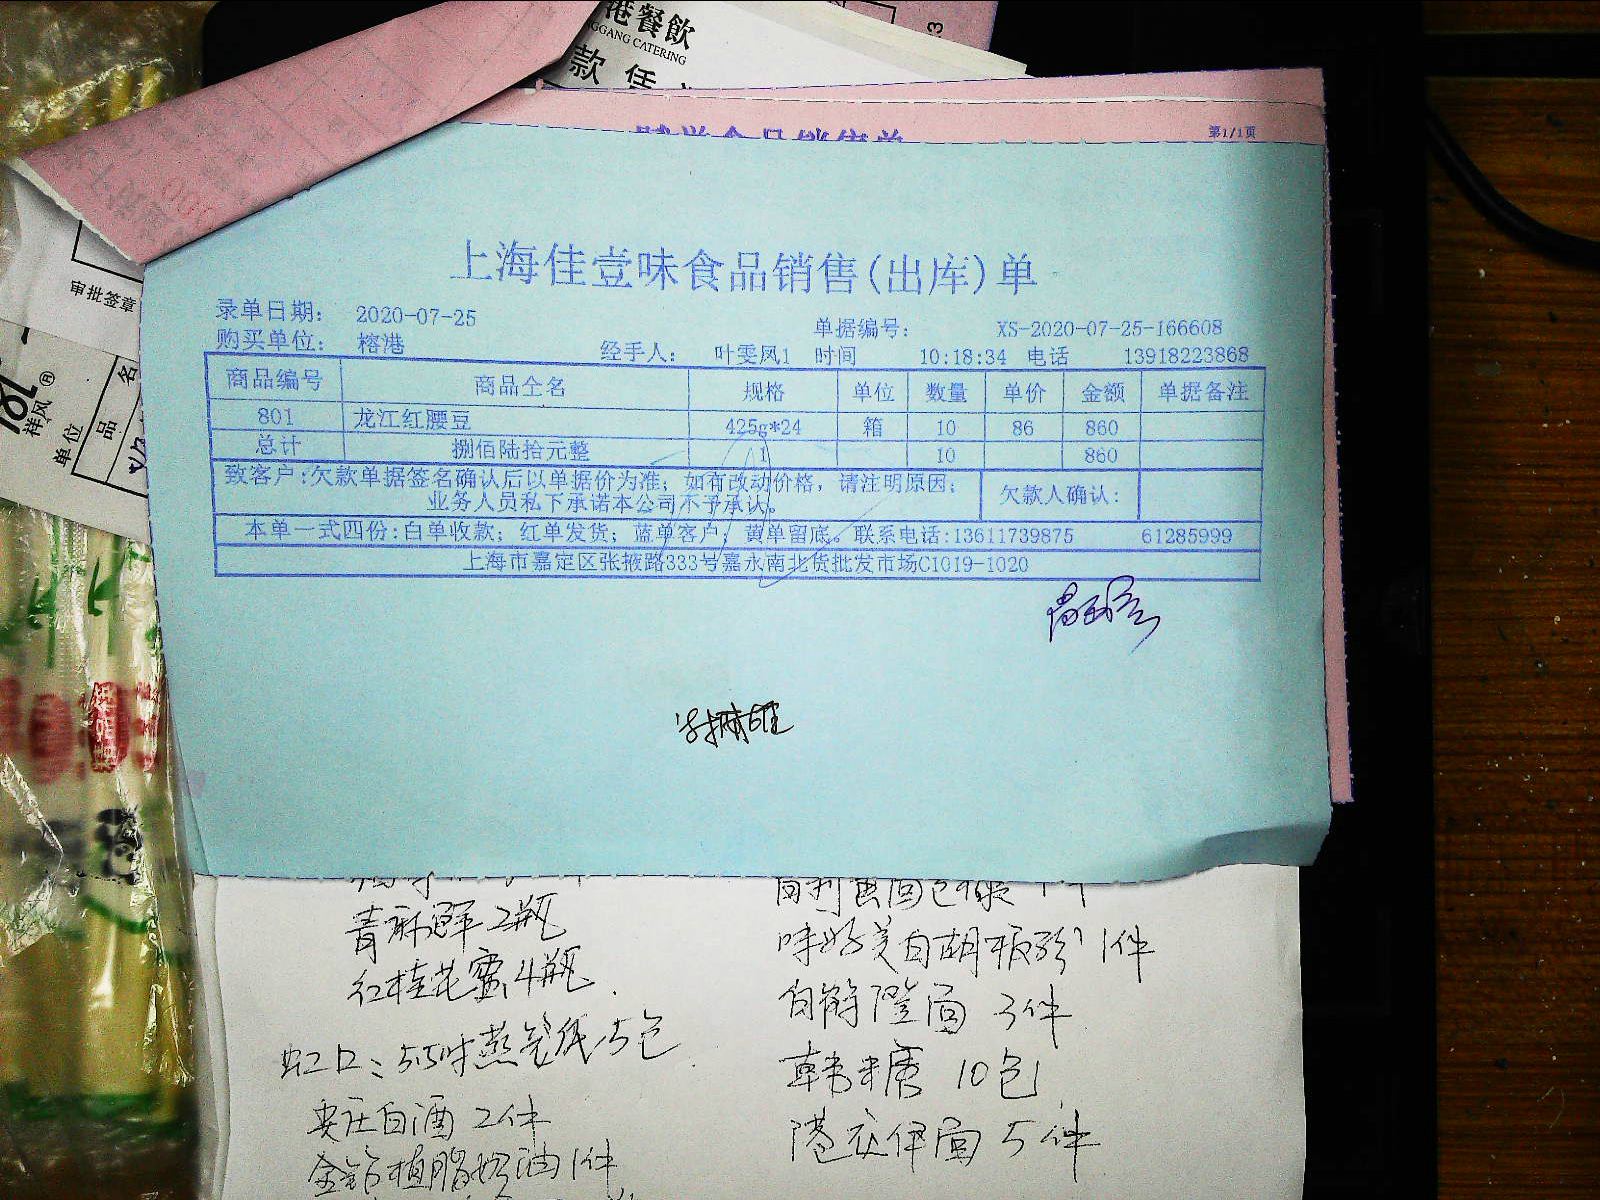 港餐飲
GGANG CATERING
款凭
第1/1页
审批签章
祥风
单位
品名
上海佳壹味食品销售(出库)单
录单日期: 2020-07-25 单据编号: XS-2020-07-25-166608
购买单位: 榕港 经手人: 叶雯凤1 时间 10:18:34 电话 13918223868
商品编号 商品全名 规格 单位 数量 单价 金额 单据备注
801 龙江红腰豆 425g*24 箱 10 86 860
总计 捌佰陆拾元整 1 10 860
致客户:欠款单据签名确认后以单据价为准; 如有改动价格, 请注明原因;
业务人员私下承诺本公司不予承认。
欠款人确认:
本单一式四份:白单收款; 红单发货; 蓝单客户; 黄单留底。联系电话:13611739875 61285999
上海市嘉定区张掖路333号嘉永南北货批发市场C1019-1020
青麻鲜2瓶
红桂花蜜4瓶
虹口:5.5吋蒸笼纸15包
安庄白酒2件
金钻植脂奶油1件
味好美白胡椒粉1件
白鹤澄面 3件
韩糖 10包
港庆伊面 5件